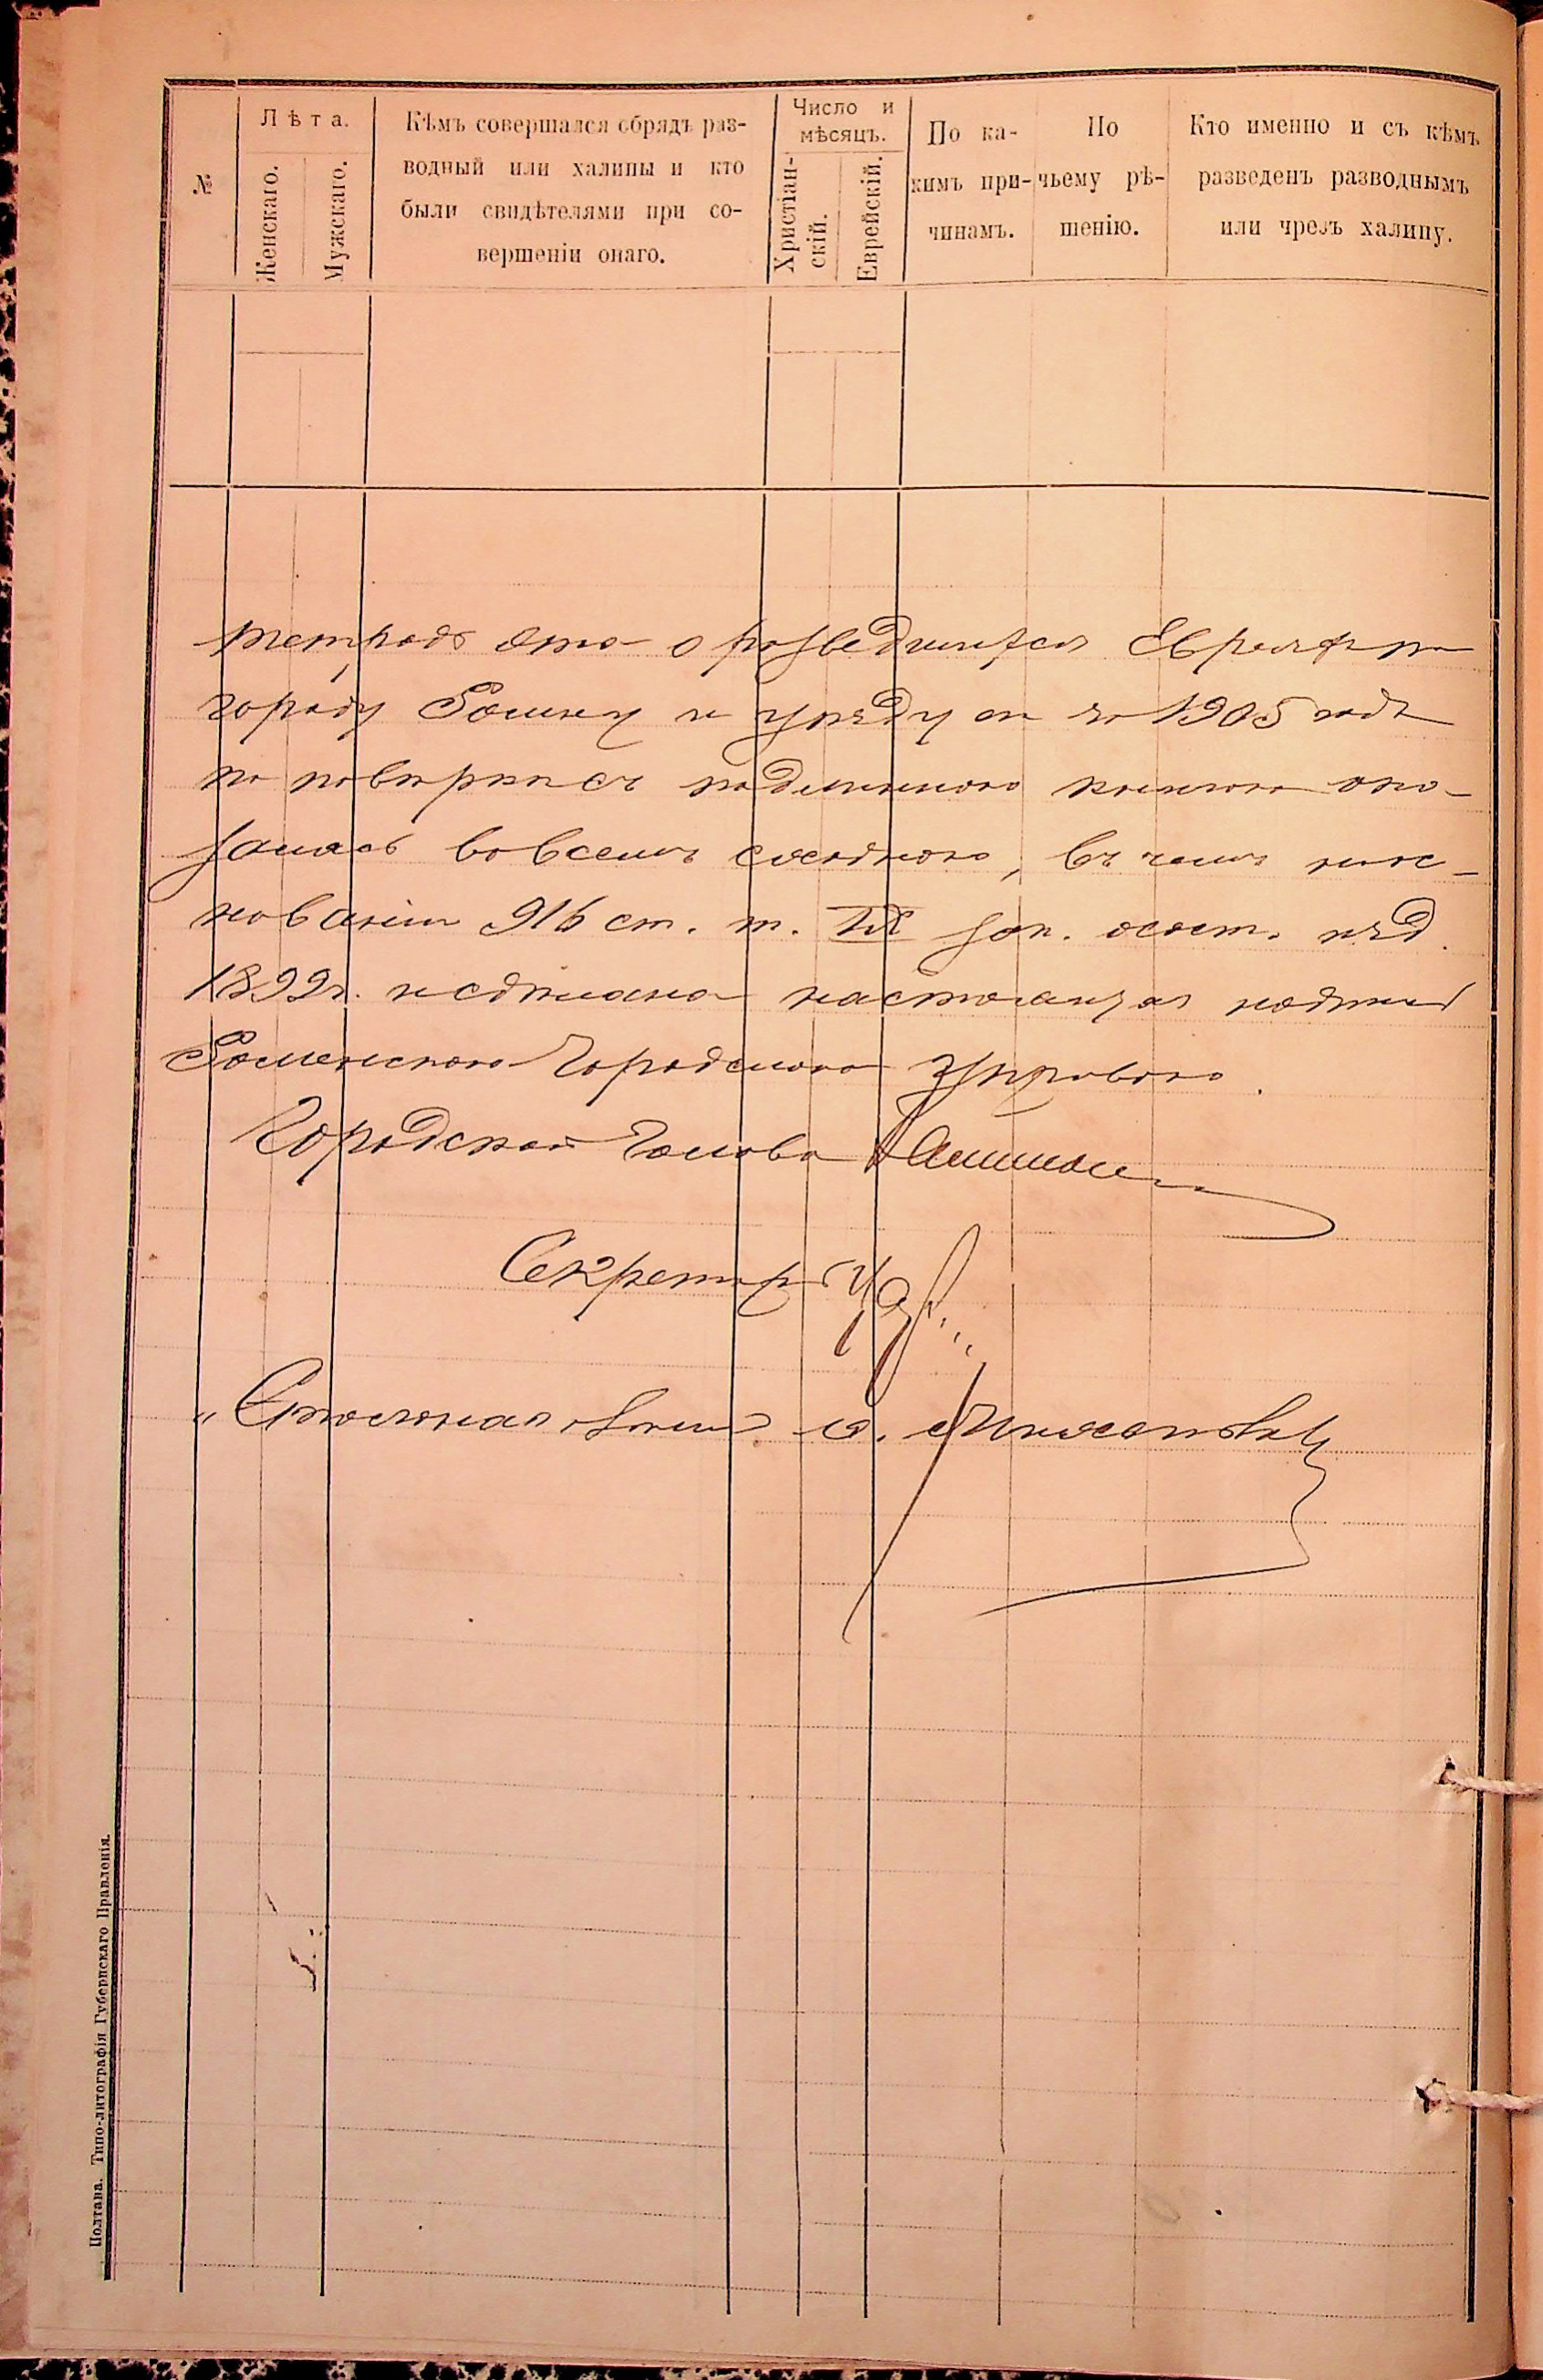 №
Лѣта.
Женскаго.
Мужскаго.
Кѣмъ совершался обрядъ раз-
водный или халицы и кто
были свидѣтелями при со-
вершеніи онаго.
Число и
мѣсяцъ.
Христіан-
скій.
Еврейскій.
По ка-
кимъ при-
чинамъ.
По
чьему рѣ-
шенію.
Кто именно и съ кѣмъ
разведенъ разводнымъ
или чрезъ халицу.
тетрадь эта о разведшихся Евреяхъ по
городу Ромну и уѣзду за 1905 годъ
по повѣркѣ съ подлинною книгою ока-
залась во всемъ сходною, въ чемъ на ос-
нованіи 916 ст. т. IX зак. о сост. изд.
1899 г. и сдѣлана настоящая надпись
Роменскою Городскою Управою.
Городской Голова
Секретарь
Полтава. Типо-литографія Губернскаго Правленія.